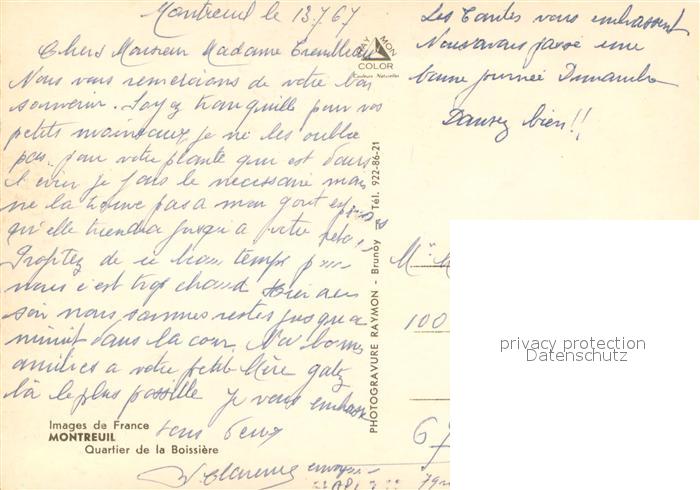 Montreuil le 13.7.67
Chers Monsieur Madame
Nous vous remercions de votre bon
souvenir. Soyez tranquille pour vos
petits moineaux je ne les oublie
pas. pour votre plante qui est dans
je fais le nécessaire mais
ne la trouve pas a mon gout
qu'elle tiendra jusqu'a votre
Profitez de ce beau temps
nous c'est trop chaud Hier au
soir nous sommes restés jusqu'a
minuit dans la cour.
amitiés a votre petite Mère gatez
la le plus possible je vous embrasse
tous deux
Images de France
MONTREUIL
Quartier de la Boissière
RAY MON
COLOR
Couleurs Naturelles
PHOTOGRAVURE RAYMON - Brunoy Tél. 922-86-21
Les Tantes vous embrassent
Nous avons passé une
bonne journée Dimanche
Dansez bien!!
100
privacy protection
Datenschutz